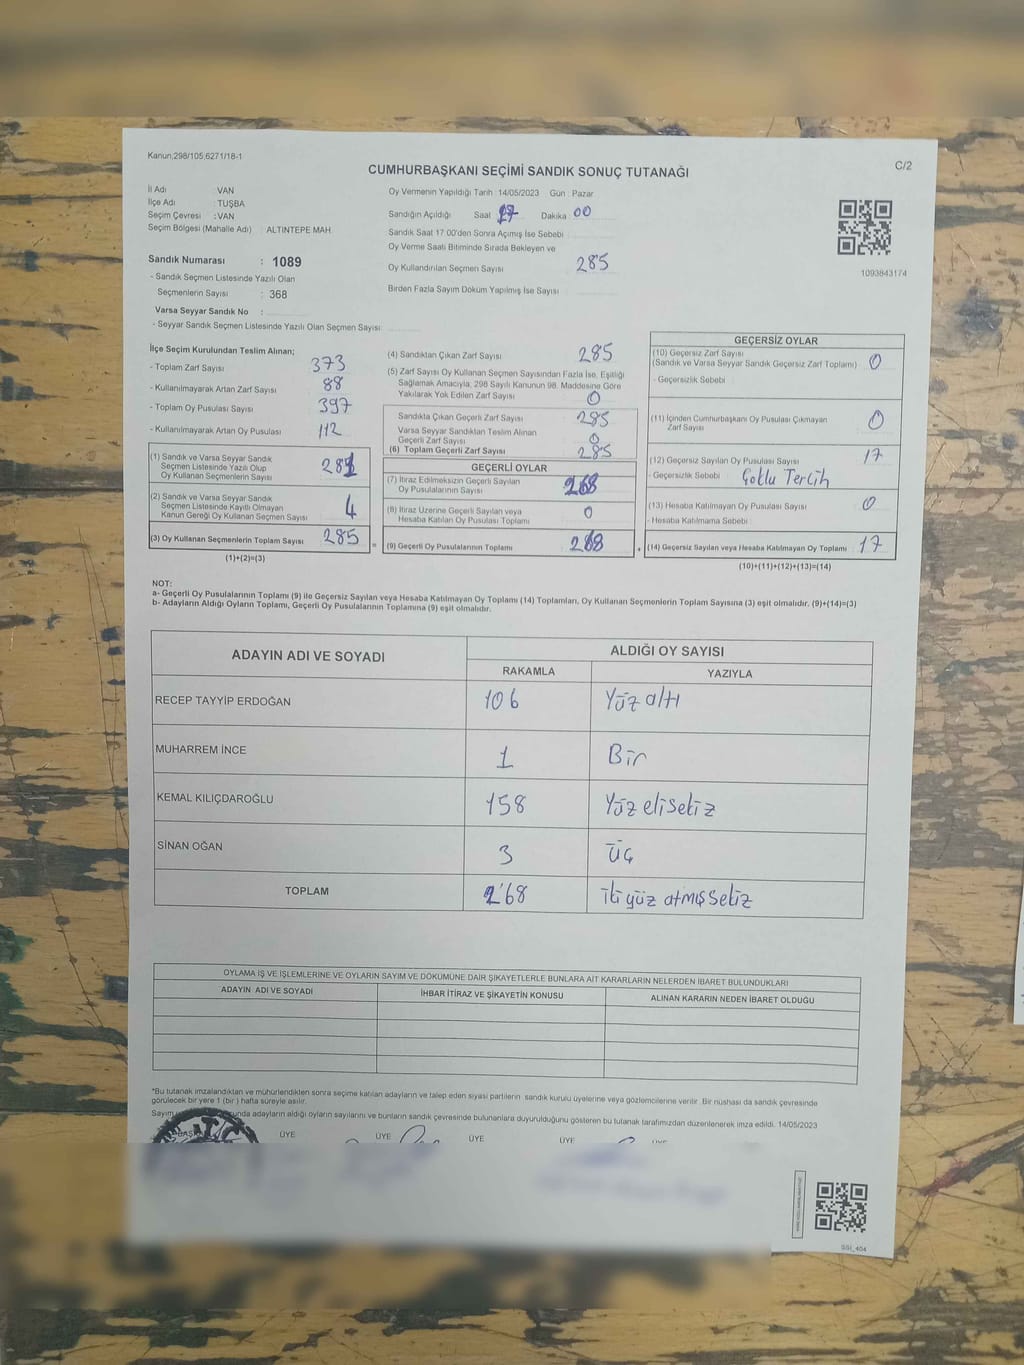 Kanun,298/105,6271/18-1
C/2
CUMHURBAŞKANI SEÇİMİ SANDIK SONUÇ TUTANAĞI
İl Adı : VAN
İlçe Adı : TUŞBA
Seçim Çevresi : VAN
Seçim Bölgesi (Mahalle Adı) : ALTINTEPE MAH.
Sandık Numarası : 1089
- Sandık Seçmen Listesinde Yazılı Olan
Seçmenlerin Sayısı : 368
Varsa Seyyar Sandık No :
- Seyyar Sandık Seçmen Listesinde Yazılı Olan Seçmen Sayısı
Oy Vermenin Yapıldığı Tarih 14/05/2023 Gün : Pazar
Sandığın Açıldığı Saat 17 Dakika : 00
Sandık Saat 17.00'den Sonra Açımış İse Sebebi
Oy Verme Saati Bitiminde Sırada Bekleyen ve
Oy Kullandırılan Seçmen Sayısı 285
Birden Fazla Sayım Döküm Yapılmış İse Sayısı
1093843174
İlçe Seçim Kurulundan Teslim Alınan;
- Toplam Zarf Sayısı 373
- Kullanılmayarak Artan Zarf Sayısı 88
- Toplam Oy Pusulası Sayısı 397
- Kullanılmayarak Artan Oy Pusulası 112
(1) Sandık ve Varsa Seyyar Sandık
Seçmen Listesinde Yazılı Olup
Oy Kullanan Seçmenlerin Sayısı 281
(2) Sandık ve Varsa Seyyar Sandık
Seçmen Listesinde Kayıtlı Olmayan
Kanun Gereği Oy Kullanan Seçmen Sayısı 4
(3) Oy Kullanan Seçmenlerin Toplam Sayısı 285
(1)+(2)=(3)
(4) Sandıktan Çıkan Zarf Sayısı 285
(5) Zarf Sayısı Oy Kullanan Seçmen Sayısından Fazla İse, Eşitliği
Sağlamak Amacıyla, 298 Sayılı Kanunun 98. Maddesine Göre
Yakılarak Yok Edilen Zarf Sayısı 0
Sandıkta Çıkan Geçerli Zarf Sayısı 285
Varsa Seyyar Sandıktan Teslim Alınan
Geçerli Zarf Sayısı 0
(6) Toplam Geçerli Zarf Sayısı 285
GEÇERLİ OYLAR
(7) İtiraz Edilmeksizin Geçerli Sayılan
Oy Pusulalarının Sayısı 268
(8) İtiraz Üzerine Geçerli Sayılan veya
Hesaba Katılan Oy Pusulası Toplamı 0
= (9) Geçerli Oy Pusulalarının Toplamı 268
GEÇERSİZ OYLAR
(10) Geçersiz Zarf Sayısı
(Sandık ve Varsa Seyyar Sandık Geçersiz Zarf Toplamı) 0
- Geçersizlik Sebebi
(11) İçinden Cumhurbaşkanı Oy Pusulası Çıkmayan
Zarf Sayısı 0
(12) Geçersiz Sayılan Oy Pusulası Sayısı 17
- Geçersizlik Sebebi Çoklu Tercih
(13) Hesaba Katılmayan Oy Pusulası Sayısı 0
- Hesaba Katılmama Sebebi
+ (14) Geçersiz Sayılan veya Hesaba Katılmayan Oy Toplamı : 17
(10)+(11)+(12)+(13)=(14)
NOT:
a- Geçerli Oy Pusulalarının Toplamı (9) ile Geçersiz Sayılan veya Hesaba Katılmayan Oy Toplamı (14) Toplamları, Oy Kullanan Seçmenlerin Toplam Sayısına (3) eşit olmalıdır. (9)+(14)=(3)
b- Adayların Aldığı Oyların Toplamı, Geçerli Oy Pusulalarının Toplamına (9) eşit olmalıdır.
ADAYIN ADI VE SOYADI ALDIĞI OY SAYISI
RAKAMLA YAZIYLA
RECEP TAYYİP ERDOĞAN 106 Yüz altı
MUHARREM İNCE 1 Bir
KEMAL KILIÇDAROĞLU 158 Yüz elisekiz
SİNAN OĞAN 3 Üç
TOPLAM 268 İkiyüz atmışsekiz
OYLAMA İŞ VE İŞLEMLERİNE VE OYLARIN SAYIM VE DÖKÜMÜNE DAİR ŞİKAYETLERLE BUNLARA AİT KARARLARIN NELERDEN İBARET BULUNDUKLARI
ADAYIN ADI VE SOYADI İHBAR İTİRAZ VE ŞİKAYETİN KONUSU ALINAN KARARIN NEDEN İBARET OLDUĞU
*Bu tutanak imzalandıktan ve mühürlendikten sonra seçime katılan adayların ve talep eden siyasi partilerin sandık kurulu üyelerine veya gözlemcilerine verilir. Bir nüshası da sandık çevresinde
görülecek bir yere 1 (bir) hafta süreyle asılır.
Sayım adayların aldığı oyların sayılarını ve bunların sandık çevresinde bulunanlara duyurulduğunu gösteren bu tutanak tarafımızdan düzenlenerek imza edildi. 14/05/2023
ÜYE ÜYE ÜYE ÜYE
SSI_404